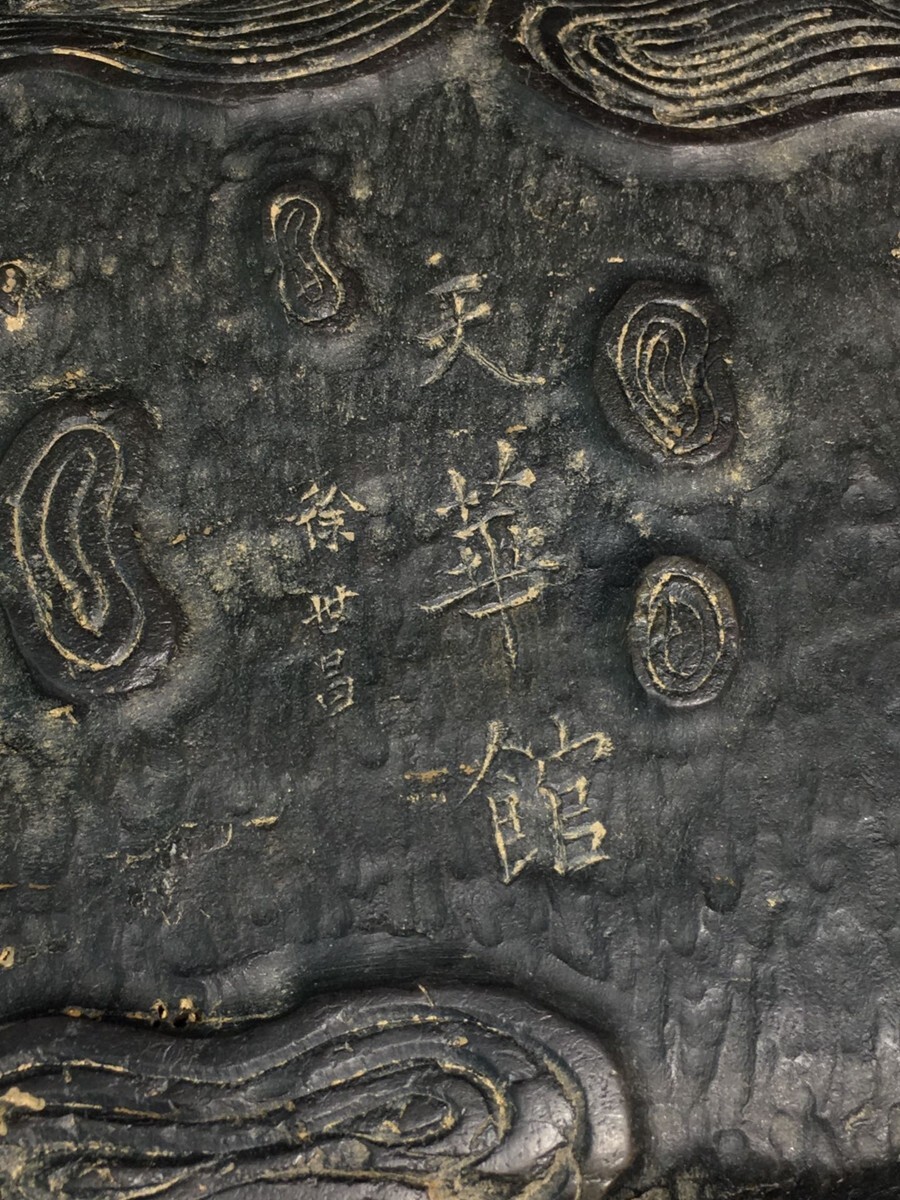 天華館
徐世昌